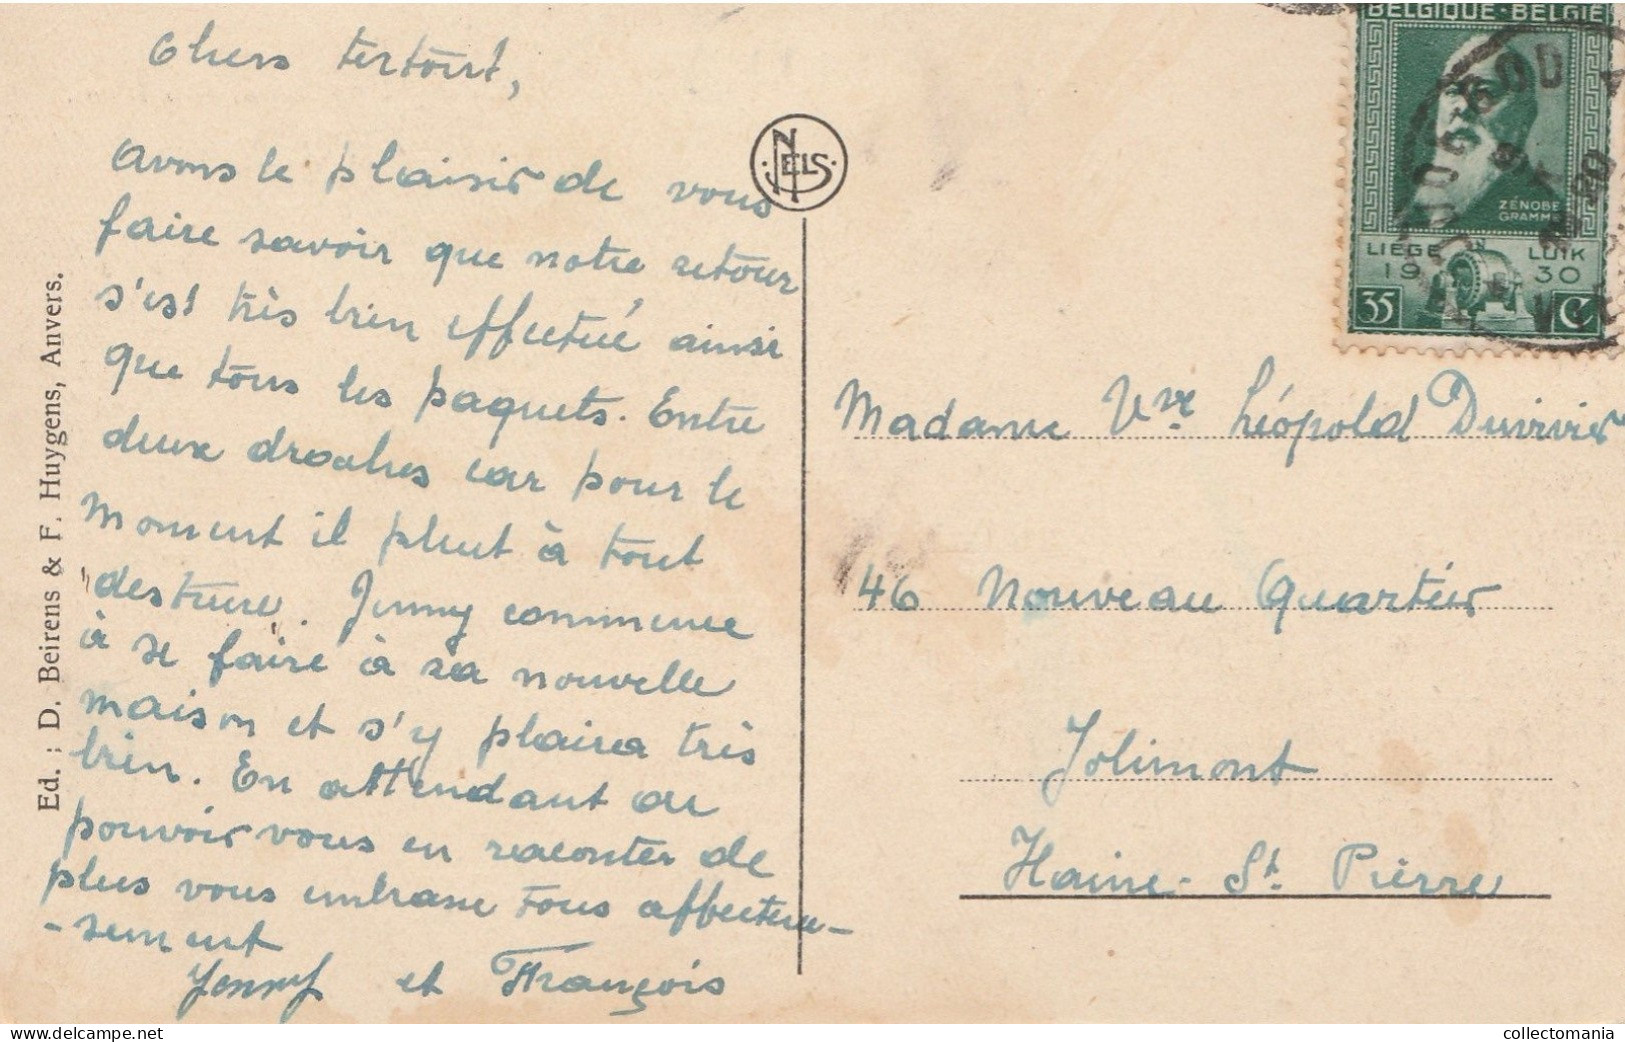 Chers tertous,
Avons le plaisir de vous
faire savoir que notre retour
s'est très bien effectué ainsi
que tous les paquets. Entre
deux draches car pour le
moment il pleut à tout
"destruire". Jenny commence
à se faire à sa nouvelle
maison et s'y plaira très
bien. En attendant de
pouvoir vous en raconter de
plus vous embrasse tous affectueu-
-sement
Jenny et François
Ed. : D. Beirens & F. Huygens, Anvers.
NELS
BELGIQUE-BELGIË
ZÉNOBE
GRAMME
LIEGE LUIK
19 30
35 C
Madame Vve Léopold Duvivier
46 Nouveau Quartier
Jolimont
Haine-St. Pierre
collectomania